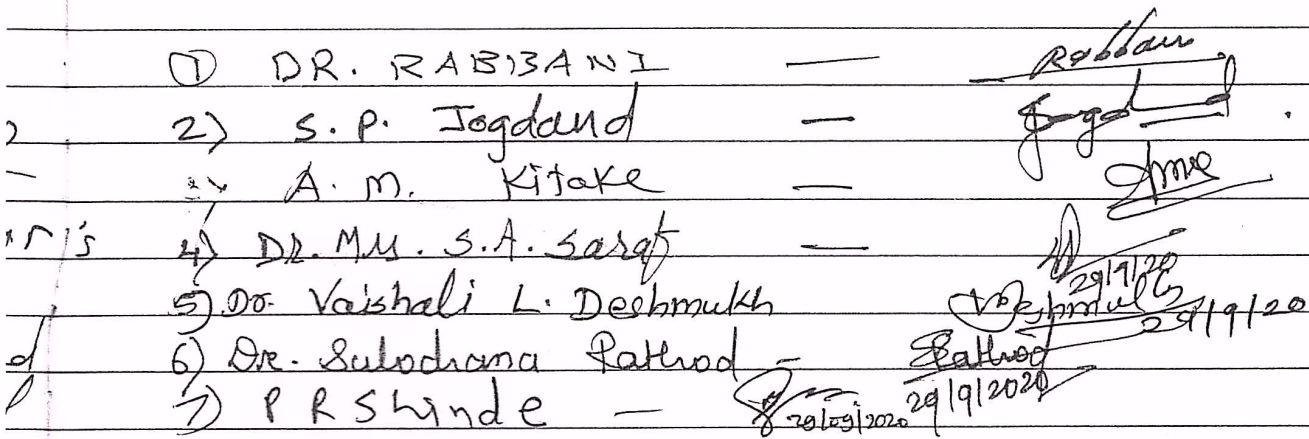 ① DR. RABBANI — Rabbani
2) S. P. Jogdand — Jogd
A. M. Kitake —
4) Dr. Mrs. S. A. Saraf — 29/9/20
5) Dr. Vaishali L. Deshmukh VDeshmukh 29/9/20
6) Dr. Sulochana Rathod - SRathod 29/9/2020
7) P R Shinde — 29/09/2020